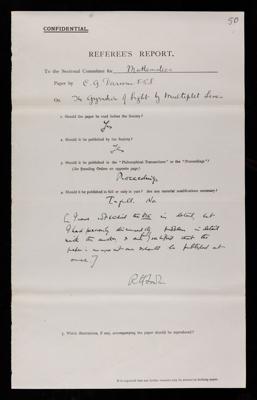 50
CONFIDENTIAL.
REFEREE'S REPORT.
To the Sectional Committee for Mathematics
Paper by C. G. Darwin F.R.S
On The Dispersion of Light by Multiplet Lines
1. Should the paper be read before the Society?
Yes
2. Should it be published by the Society?
Yes
3. Should it be published in the "Philosophical Transactions" or the "Proceedings"?
(See Standing Orders on opposite page)
Proceedings
4. Should it be published in full or only in part? Are any material modifications necessary?
In full. No
[I have not checked the in detail, but
I had previously discussed the problem in detail
with the author & am satisfied that the
paper is important & should be published at
once]
RHFowler
5. Which illustrations, if any, accompanying the paper should be reproduced?
It is requested that any further remarks may be written on